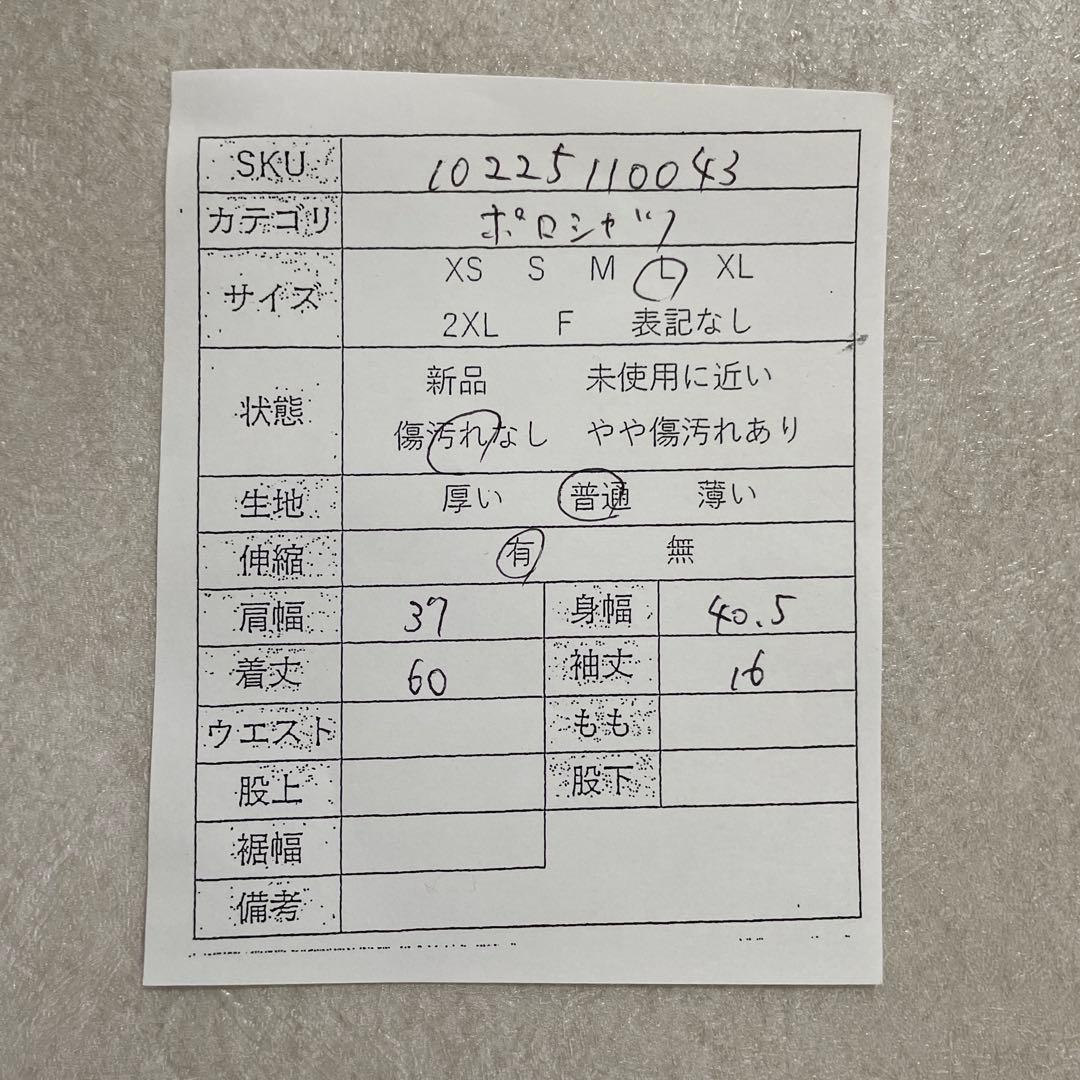 SKU 10225110043
カテゴリ ポロシャツ
サイズ XS S M L XL
2XL F 表記なし
状態 新品 未使用に近い
傷汚れなし やや傷汚れあり
生地 厚い 普通 薄い
伸縮 有 無
肩幅 37 身幅 40.5
着丈 60 袖丈 16
ウエスト もも
股上 股下
裾幅
備考